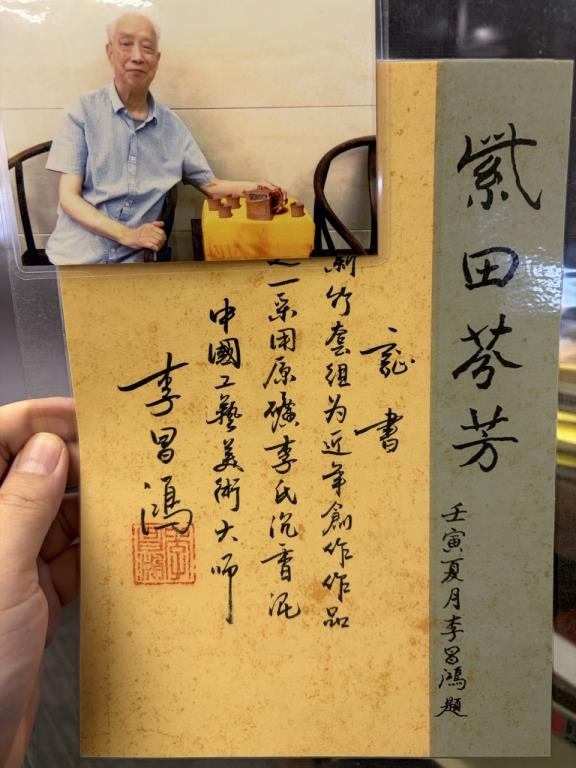 紫田芬芳
壬寅夏月李昌鴻題
証書
新竹套組为近年創作作品
之一采用原礦李氏沉香泥
中國工藝美術大师
李昌鴻